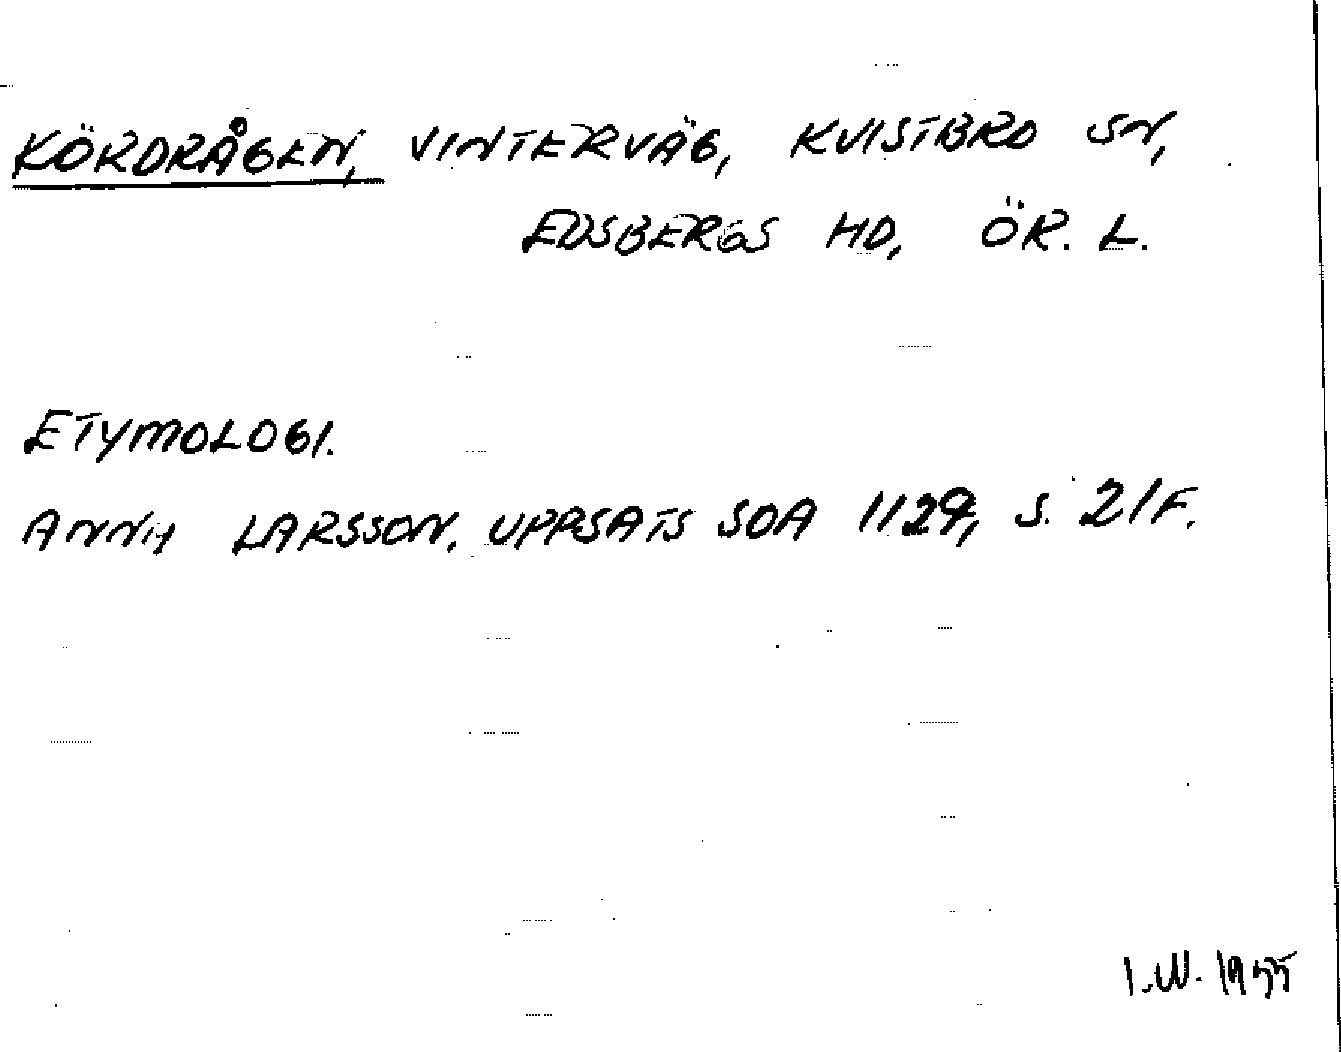 KÖRDRÅGEN, VINTERVÄG, KVISTBRO SN,
EDSBERGS HD, ÖR. L.
ETYMOLOGI.
ANNA LARSSON, UPPSATS SOA 1129, S. 21F.
I.W. 1955